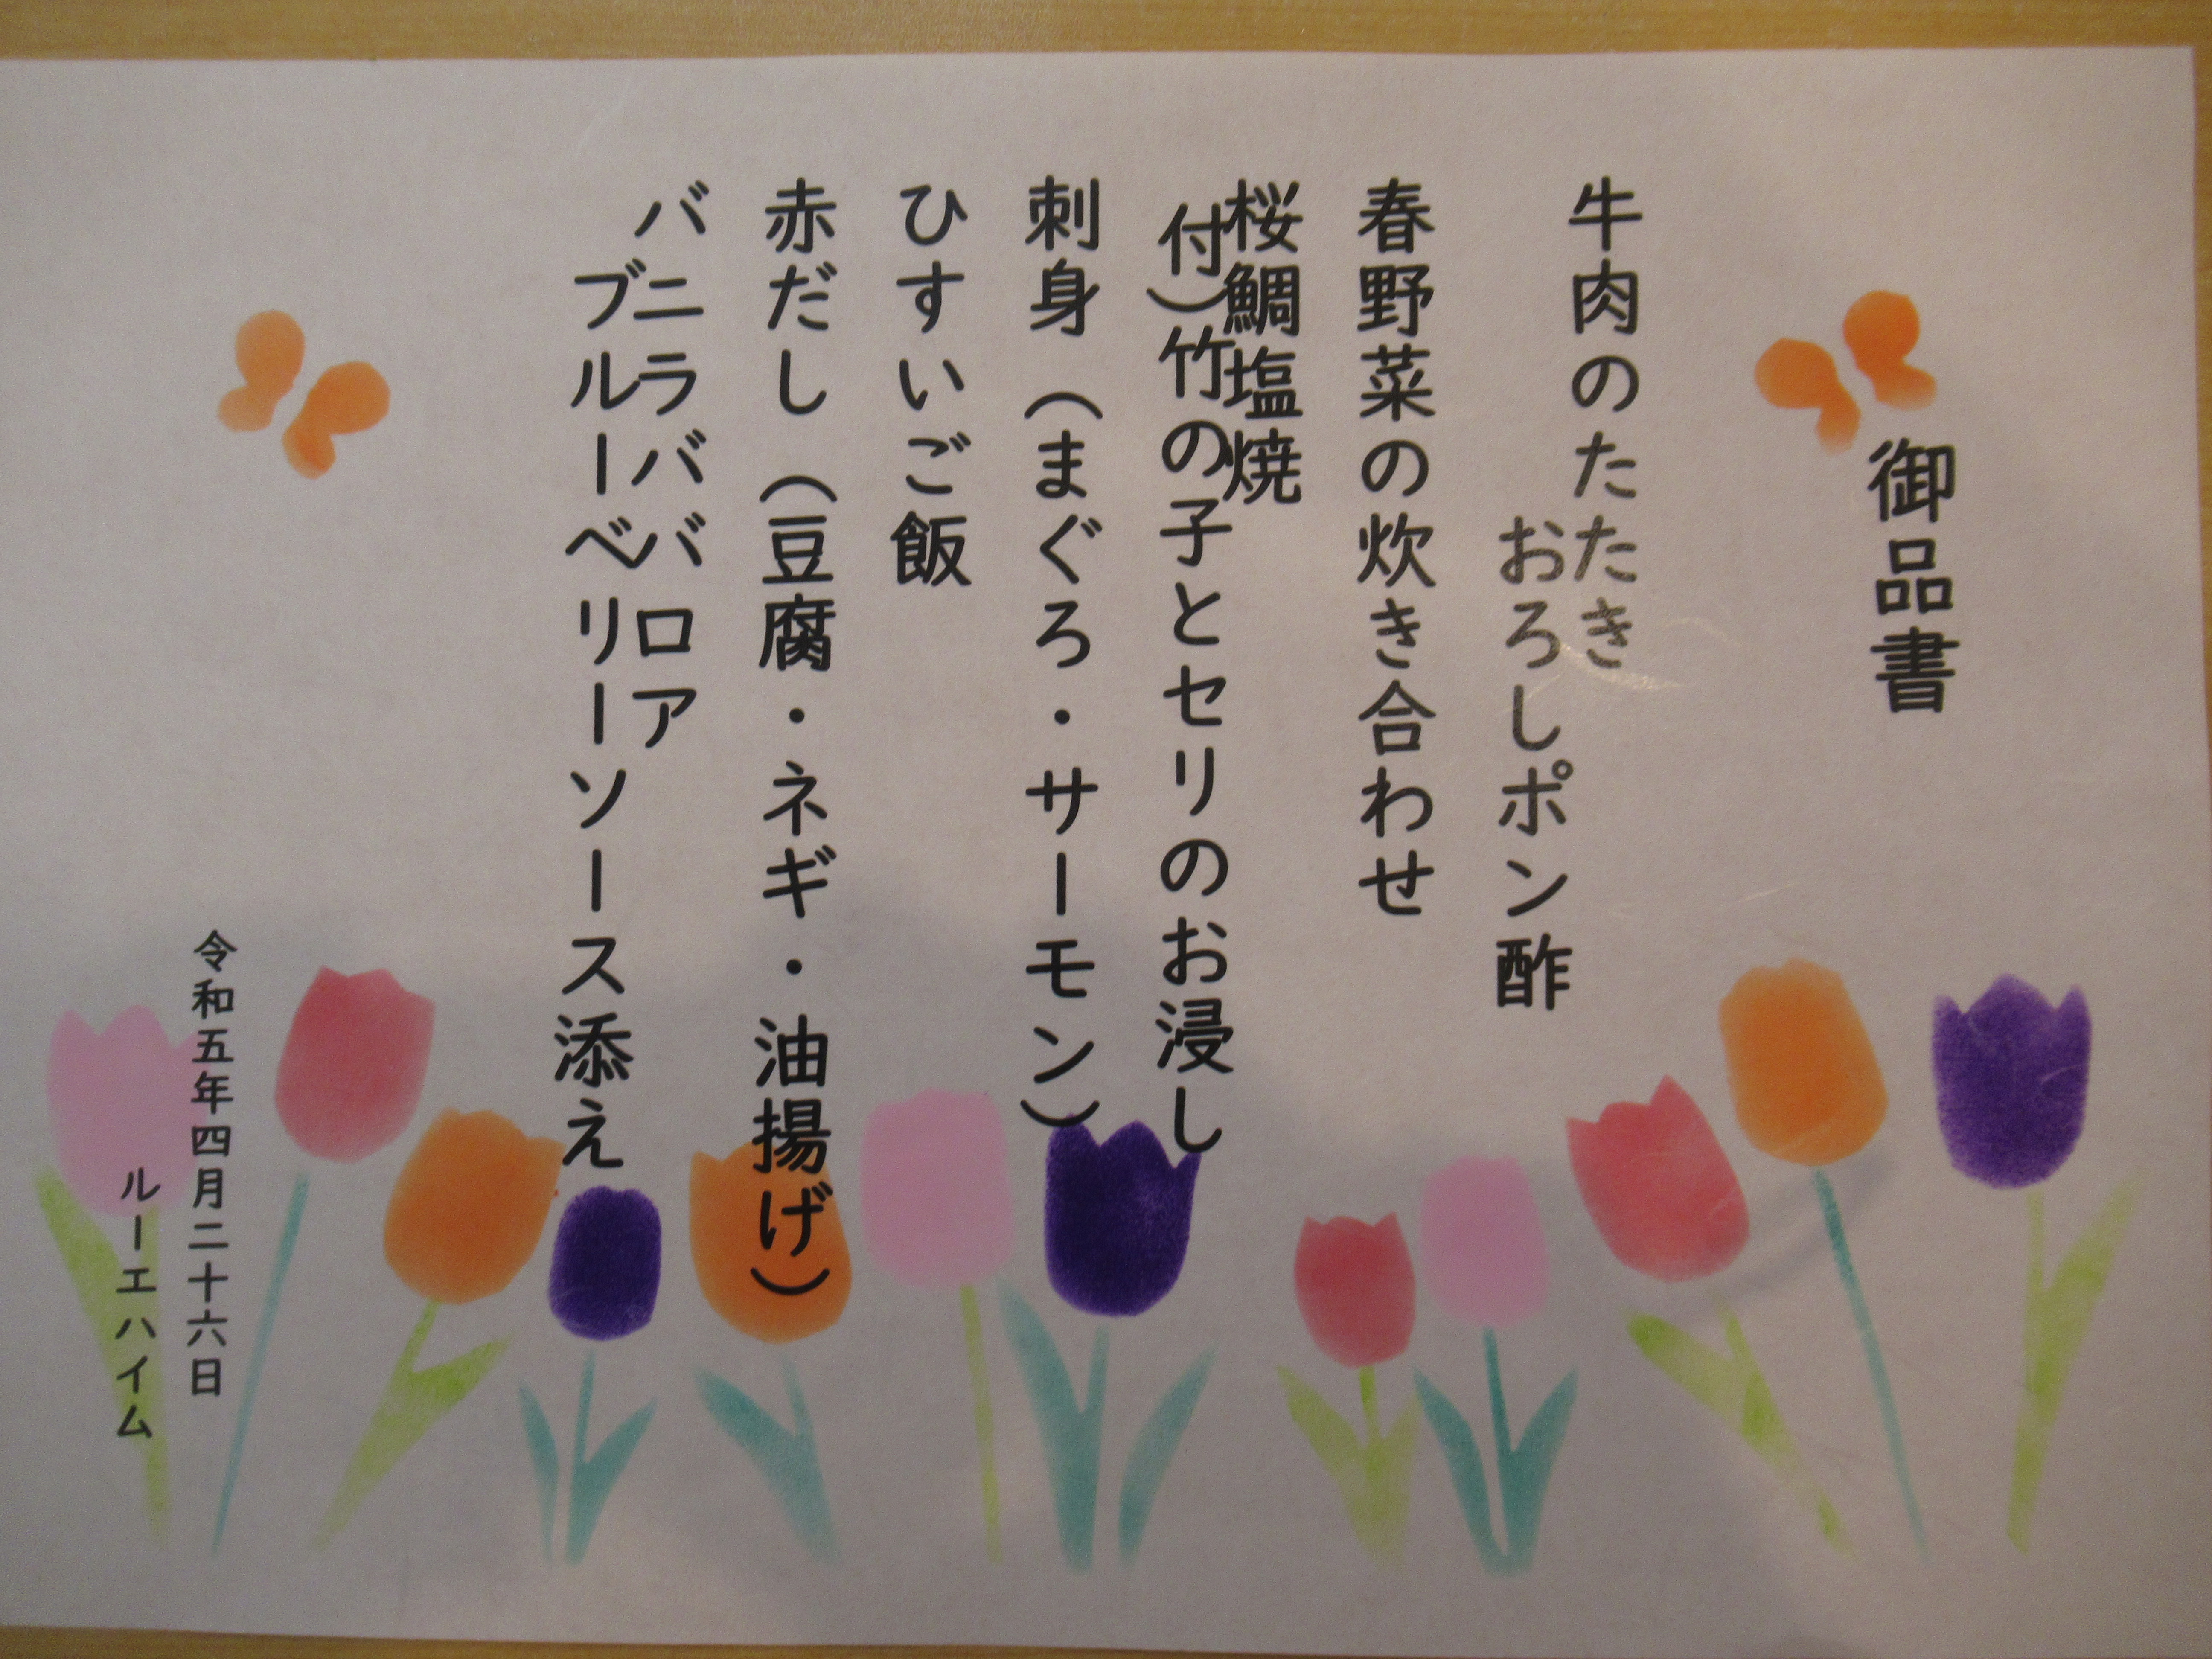 御品書
牛肉のたたき
おろしポン酢
春野菜の炊き合わせ
桜鯛塩焼
付）竹の子とセリのお浸し
刺身（まぐろ・サーモン）
ひすいご飯
赤だし（豆腐・ネギ・油揚げ）
バニラババロア
ブルーベリーソース添え
令和五年四月二十六日
ルーエハイム